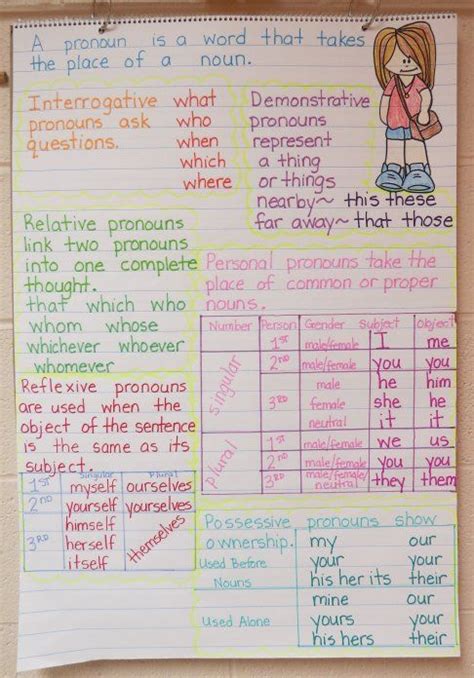 A pronoun is a word that takes
the place of a noun.
Interrogative what
pronouns ask who
questions. when
which
where
Demonstrative
pronouns
represent
a thing
or things
nearby~ this these
far away~ that those
Relative pronouns
link two pronouns
into one complete
thought.
that which who
whom whose
whichever whoever
whomever
Personal pronouns take the
place of common or proper
nouns.
Number Person Gender Subject Object
singular
1st male/female I me
2nd male/female you you
3rd male he him
female she her
neutral it it
plural
1st male/female we us
2nd male/female you you
3rd male/female/neutral they them
Reflexive pronouns
are used when the
object of the sentence
is the same as its
subject.
Singular Plural
1st myself ourselves
2nd yourself yourselves
3rd himself themselves
herself
itself
Possessive pronouns show
ownership. my our
Used Before your your
Nouns his her its their
mine our
Used Alone yours your
his hers their